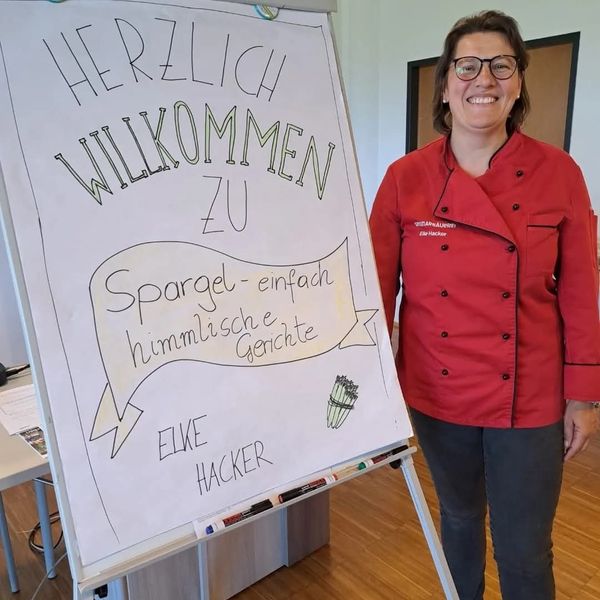 HERZLICH
WILLKOMMEN
ZU
Spargel - einfach
himmlische
Gerichte
ELKE
HACKER
Elke Hacker